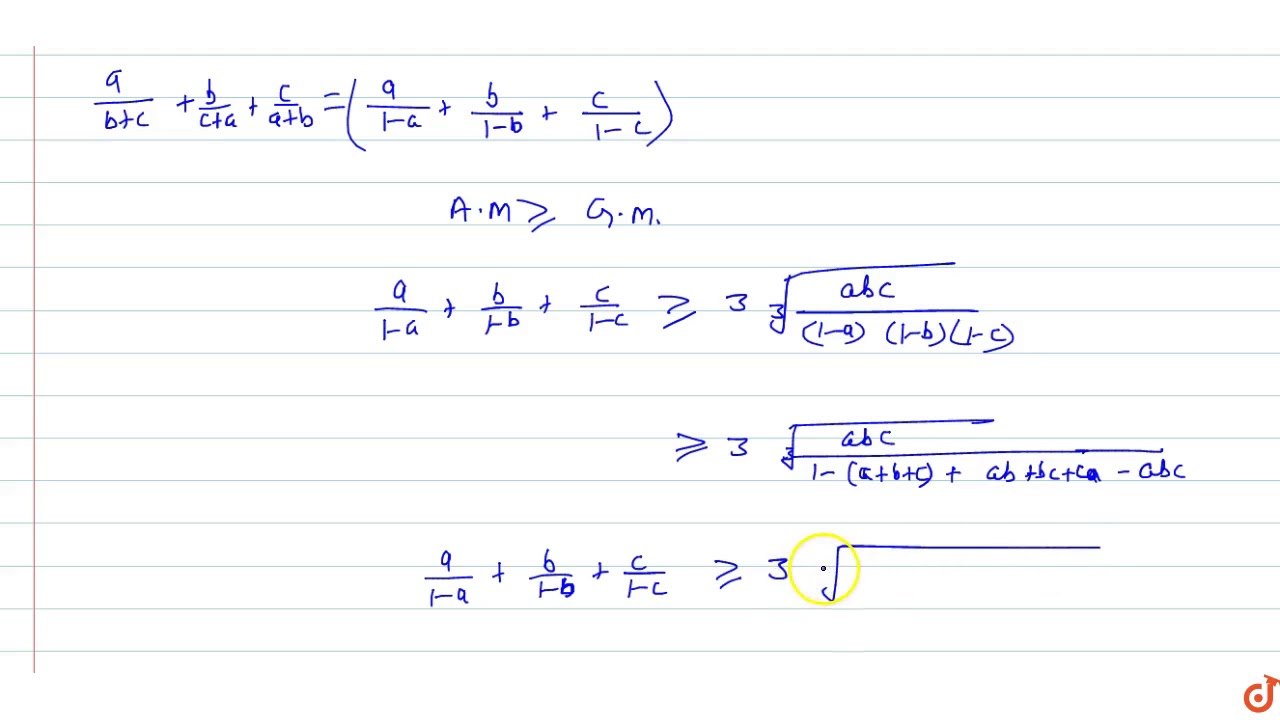 a/(b+c) + b/(c+a) + c/(a+b) = (a/(1-a) + b/(1-b) + c/(1-c))
A.M ≥ G.M.
a/(1-a) + b/(1-b) + c/(1-c) ≥ 3 ∛(abc/((1-a)(1-b)(1-c)))
≥ 3 ∛(abc/(1-(a+b+c)+ab+bc+ca-abc))
a/(1-a) + b/(1-b) + c/(1-c) ≥ 3 √